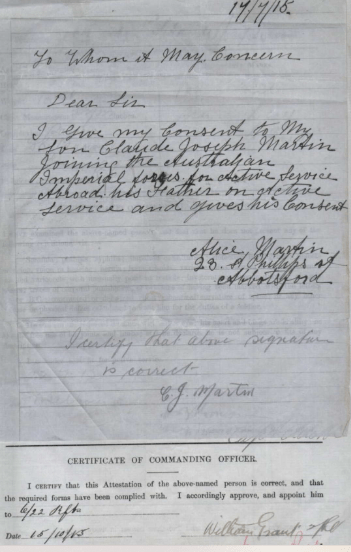 17/7/15.
To Whom it May Concern
Dear Sir
I Give my Consent to My
Son Claude Joseph Martin
Joining the Australian
Imperial forces for Active Service
Abroad. his Father on Active
Service and gives his Consent
Alice Martin
28. St Phillips st
Abbotsford
I certify that above signature
is correct
C. J. Martin
CERTIFICATE OF COMMANDING OFFICER.
I CERTIFY that this Attestation of the above-named person is correct, and that
the required forms have been complied with. I accordingly approve, and appoint him
to 6/22 Rfts
Date 15/10/15
William Grant